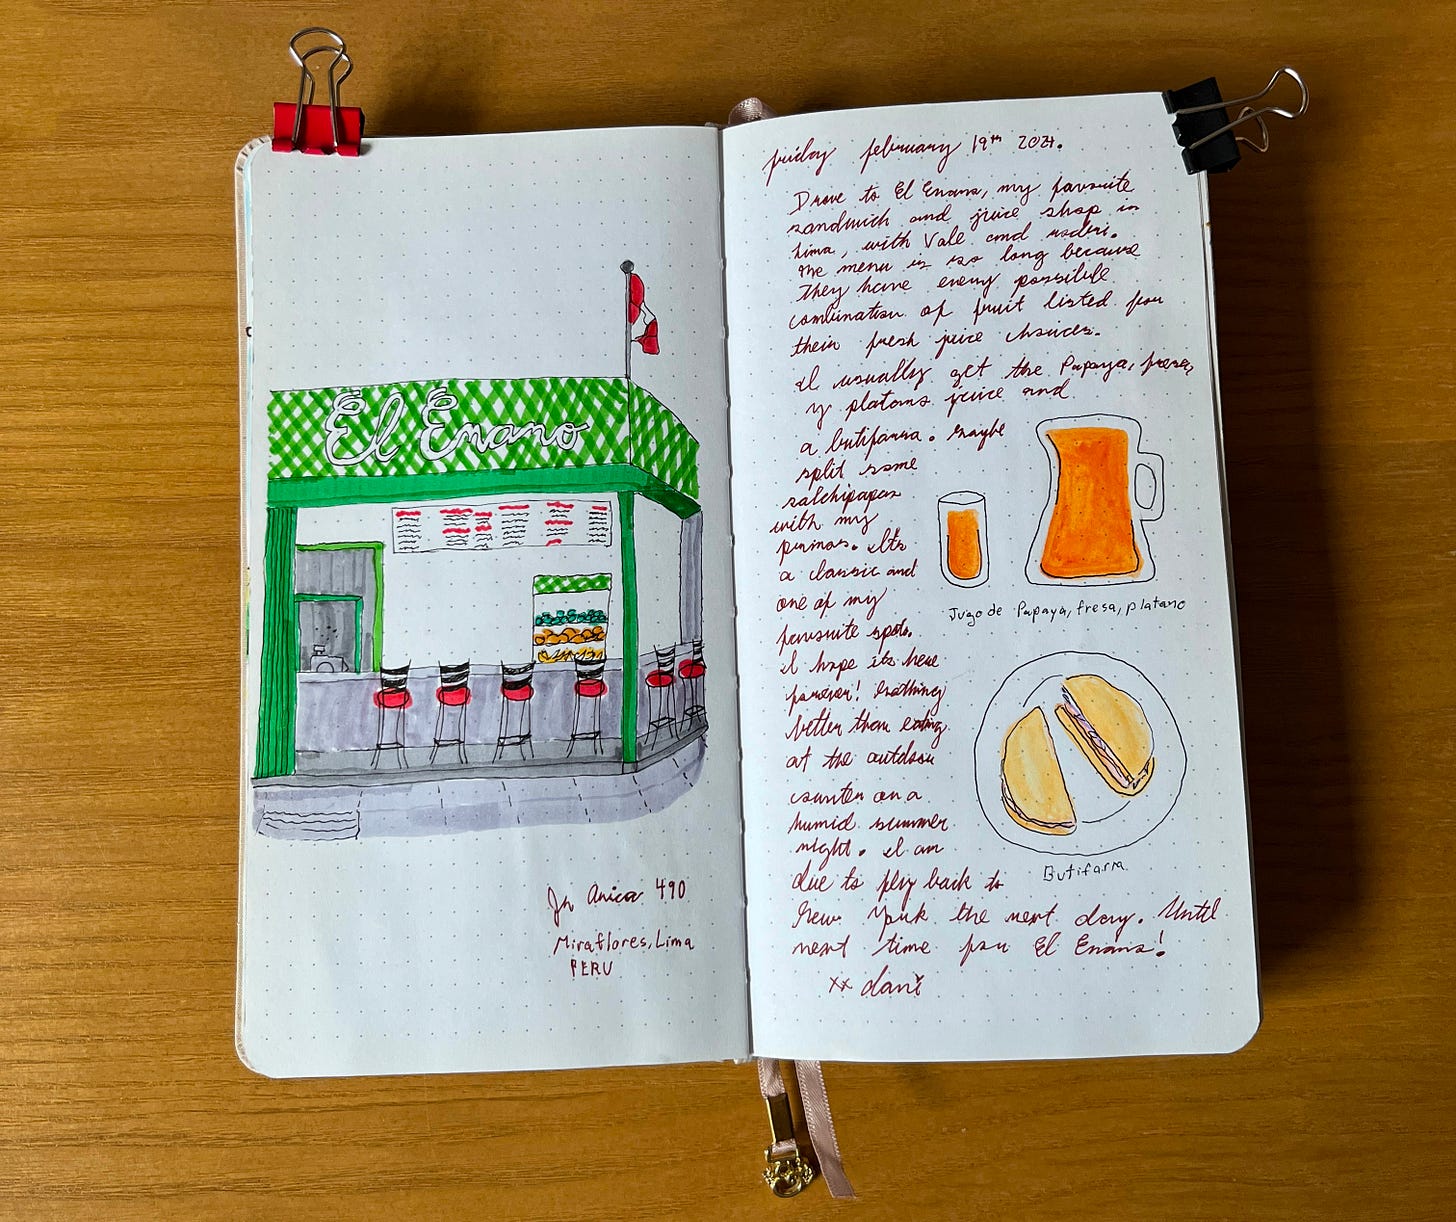 El Enano
Jr Arica 490
Miraflores, Lima
PERU
friday february 19th 2021.
Drove to El Enano, my favorite
sandwich and juice shop in
Lima, with Vale and rodri.
the menu is so long because
they have every possible
combination of fruit listed for
their fresh juice choices.
I usually get the Papaya, fresa,
y platano juice and
a butifarra. Maybe
split some
salchipapas
with my
primos. Its
a classic and
one of my
favorite spots.
I hope its here
forever! Nothing
better than eating
at the outdoor
counter on a
humid summer
night. I am
due to fly back to
New York the next day. Until
next time for El Enano!
xx dani
Jugo de Papaya, fresa, platano
Butifarra